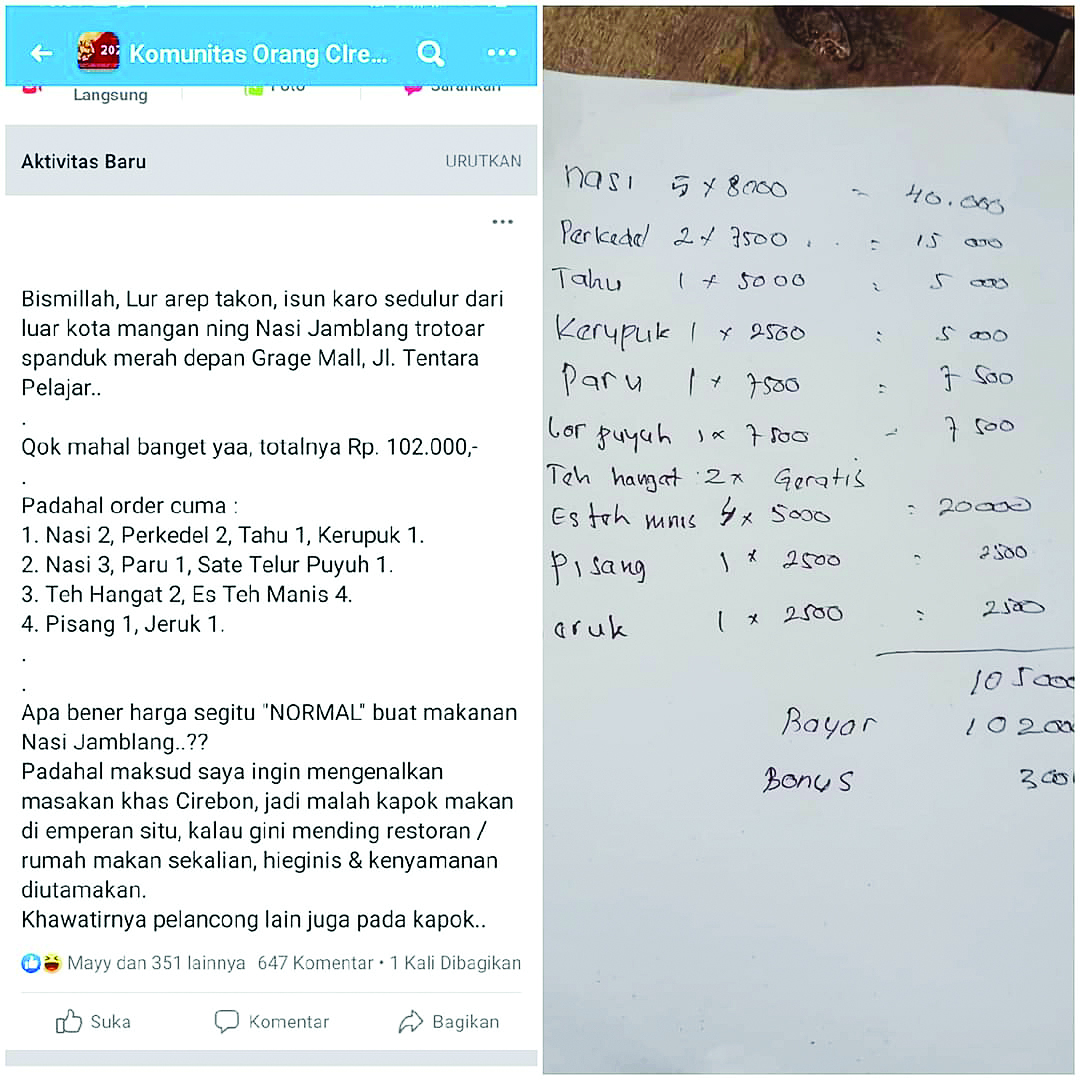 202 Komunitas Orang CIre...
Langsung
Foto
Sarankan
Aktivitas Baru
URUTKAN
Bismillah, Lur arep takon, isun karo sedulur dari
luar kota mangan ning Nasi Jamblang trotoar
spanduk merah depan Grage Mall, Jl. Tentara
Pelajar..
.
Qok mahal banget yaa, totalnya Rp. 102.000,-
.
Padahal order cuma :
1. Nasi 2, Perkedel 2, Tahu 1, Kerupuk 1.
2. Nasi 3, Paru 1, Sate Telur Puyuh 1.
3. Teh Hangat 2, Es Teh Manis 4.
4. Pisang 1, Jeruk 1.
.
.
Apa bener harga segitu "NORMAL" buat makanan
Nasi Jamblang..??
Padahal maksud saya ingin mengenalkan
masakan khas Cirebon, jadi malah kapok makan
di emperan situ, kalau gini mending restoran /
rumah makan sekalian, hieginis & kenyamanan
diutamakan.
Khawatirnya pelancong lain juga pada kapok..
Mayy dan 351 lainnya 647 Komentar • 1 Kali Dibagikan
Suka Komentar Bagikan
nasi 5 x 8000 = 40.000
Perkedel 2 x 7500 . . = 15 000
Tahu 1 x 5000 : 5 000
Kerupuk 1 x 2500 : 5 000
Paru 1 x 7500 = 7 500
lor puyuh 1 x 7500 = 7 500
Teh hangat : 2 x Geratis
Es teh mnis 4 x 5000 = 20000
Pisang 1 x 2500 = 2500
aruk 1 x 2500 : 2500
105000
Bayar 102000
Bonus 300